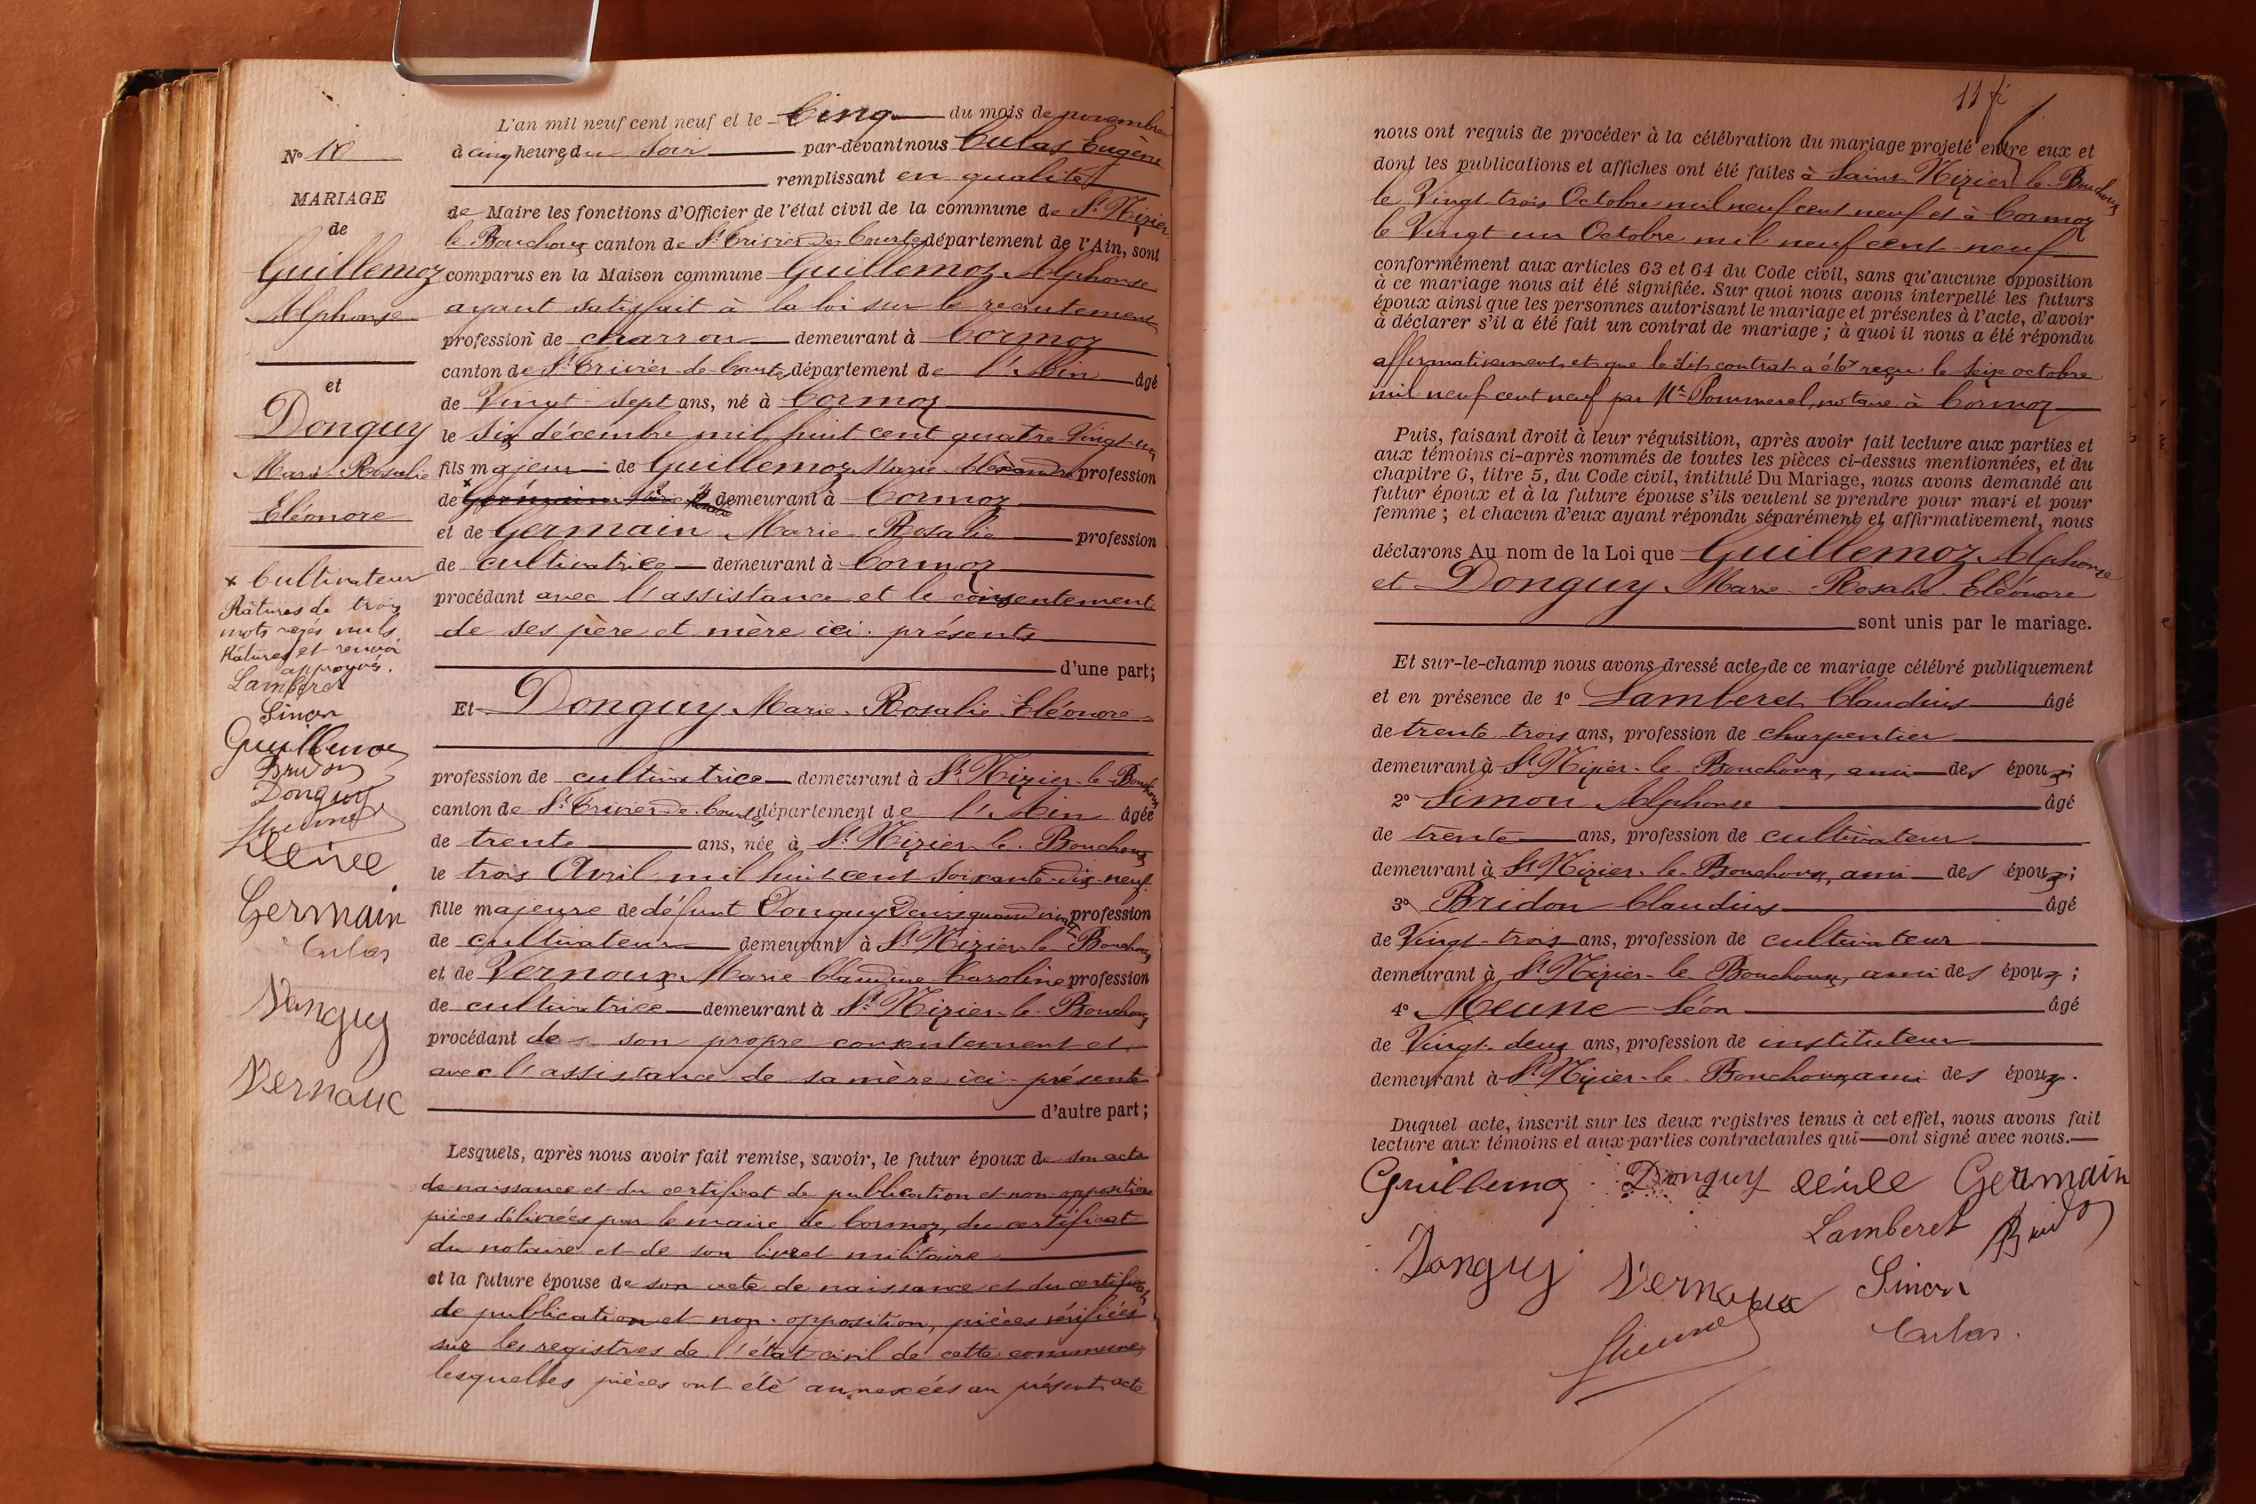 L'an mil neuf cent neuf et le Cinq du mois de novembre
à cinq heures du soir par-devant nous Culas Eugène
remplissant en qualité
de Maire les fonctions d'Officier de l'état civil de la commune de St Nizier
le Bouchoux canton de St Trivier de Courtes département de l'Ain, sont
comparus en la Maison commune Guillemoz Alphonse
ayant satisfait à la loi sur le recrutement
profession de charron demeurant à Cormoz
canton de St Trivier de Courtes département de l'Ain âgé
de Vingt-sept ans, né à Cormoz
le six décembre mil huit cent quatre-vingt-un
fils majeur de Guillemoz Marie Alexandre profession
de demeurant à Cormoz
et de Germain Marie-Rosalie profession
de cultivatrice demeurant à Cormoz
procédant avec l'assistance et le consentement
de ses père et mère ici présents
d'une part;
Et Donguy Marie-Rosalie Eléonore
profession de cultivatrice demeurant à St Nizier-le-Bouchoux
canton de St Trivier de Courtes département de l'Ain âgée
de trente ans, née à St Nizier-le-Bouchoux
le trois Avril mil huit cent soixante-dix-neuf
fille majeure de défunt Donguy profession
de cultivateur demeurant à St Nizier-le-Bouchoux
et de Vernoux Marie Claudine Caroline profession
de cultivatrice demeurant à St Nizier-le-Bouchoux
procédant de son propre consentement et
avec l'assistance de sa mère ici présente
d'autre part;
Lesquels, après nous avoir fait remise, savoir, le futur époux de son acte
de naissance et du certificat de publication et non opposition
pièces délivrées par le maire de Cormoz, du certificat
du notaire et de son livret militaire
et la future épouse de son acte de naissance et du certificat
de publication et non-opposition, pièces vérifiées
sur les registres de l'état civil de cette commune
lesquelles pièces ont été annexées au présent acte
No 10
MARIAGE
de
Guillemoz
Alphonse
et
Donguy
Marie Rosalie
Eléonore
x Cultivateur
Râtures de trois
mots rayés nuls.
Râtures et renvoi
approuvés.
Lamberet
Simon
Guillemoz
Bridon
Donguy
Meune
Germain
Culas
Donguy
Vernoux
11
nous ont requis de procéder à la célébration du mariage projeté entre eux et
dont les publications et affiches ont été faites à Saint Nizier le Bouchoux
le Vingt trois Octobre mil neuf cent neuf et à Cormoz
le Vingt un Octobre mil neuf cent neuf
conformément aux articles 63 et 64 du Code civil, sans qu'aucune opposition
à ce mariage nous ait été signifiée. Sur quoi nous avons interpellé les futurs
époux ainsi que les personnes autorisant le mariage et présentes à l'acte, d'avoir
à déclarer s'il a été fait un contrat de mariage; à quoi il nous a été répondu
affirmativement et que le dit contrat a été reçu le seize octobre
mil neuf cent neuf par Me Pommerel, notaire à Cormoz
Puis, faisant droit à leur réquisition, après avoir fait lecture aux parties et
aux témoins ci-après nommés de toutes les pièces ci-dessus mentionnées, et du
chapitre 6, titre 5, du Code civil, intitulé Du Mariage, nous avons demandé au
futur époux et à la future épouse s'ils veulent se prendre pour mari et pour
femme; et chacun d'eux ayant répondu séparément et affirmativement, nous
déclarons Au nom de la Loi que Guillemoz Alphonse
et Donguy Marie-Rosalie-Eléonore
sont unis par le mariage.
Et sur-le-champ nous avons dressé acte de ce mariage célébré publiquement
et en présence de 1o Lamberet Claudius âgé
de trente trois ans, profession de charpentier
demeurant à St Nizier-le-Bouchoux, ami des époux;
2o Simon Alphonse âgé
de trente ans, profession de cultivateur
demeurant à St Nizier-le-Bouchoux, ami des époux;
3o Bridon Claudius âgé
de Vingt-trois ans, profession de cultivateur
demeurant à St Nizier-le-Bouchoux, ami des époux;
4o Meune Léon âgé
de Vingt-deux ans, profession de instituteur
demeurant à St Nizier-le-Bouchoux ami des époux.
Duquel acte, inscrit sur les deux registres tenus à cet effet, nous avons fait
lecture aux témoins et aux parties contractantes qui ont signé avec nous.
Guillemoz Donguy Germain
Lamberet Bridon
Donguy Vernoux Simon
Meune Culas.